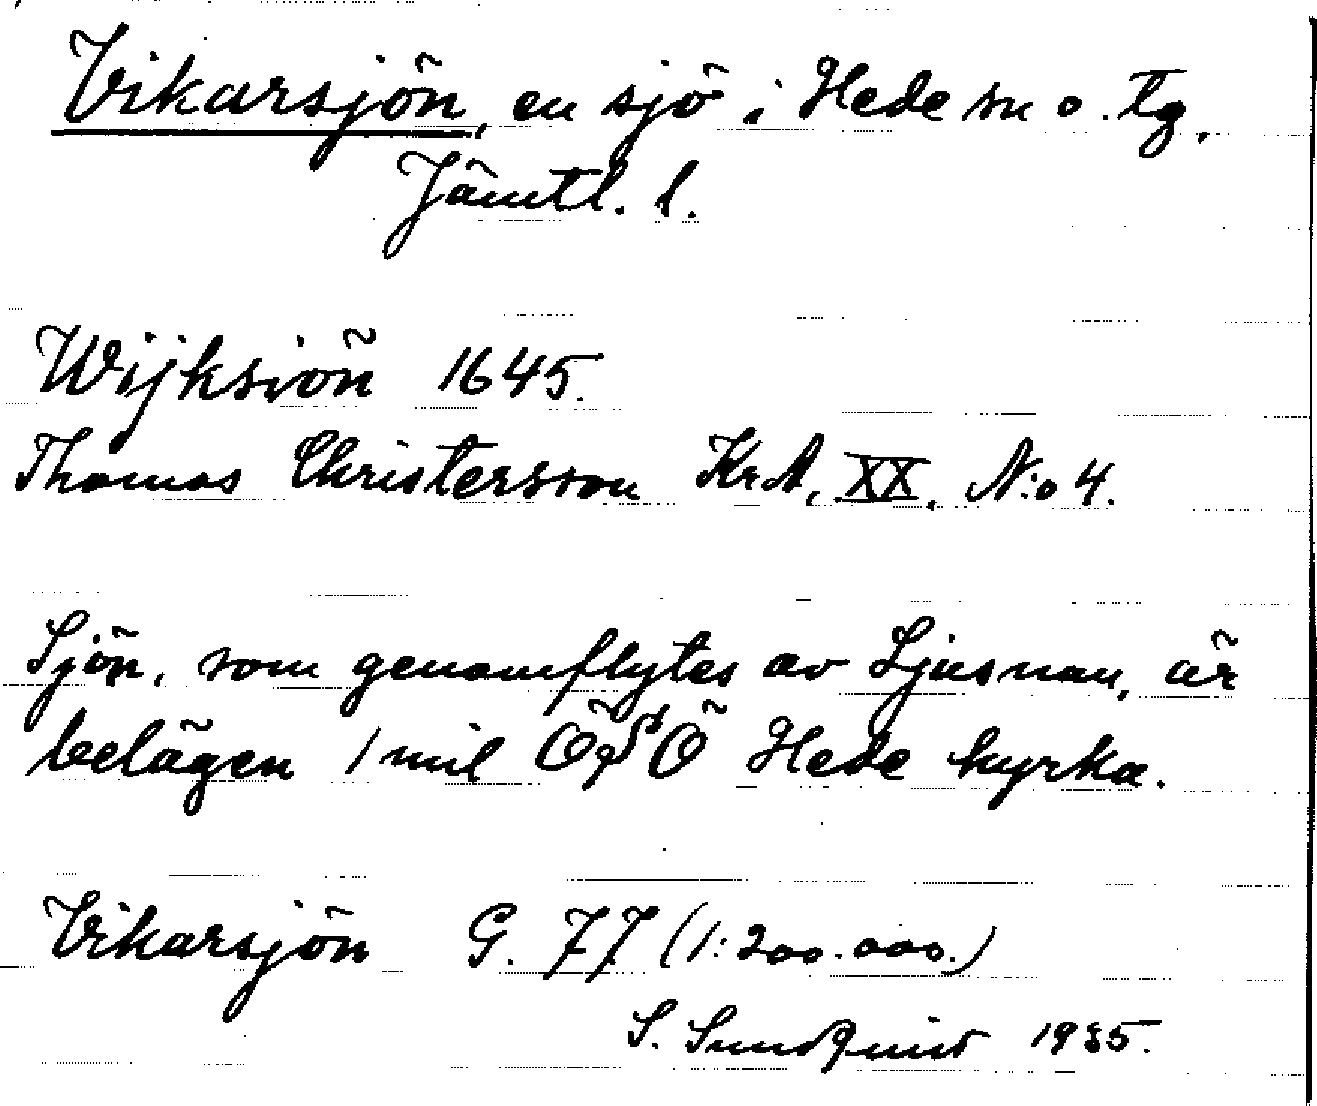 Vikarsjön, en sjö i Hede sn o. tg.
Jämtl. l.
Wijksiön 1645.
Thomas Christersson Kr.A. XX. N:o 4.
Sjön, som genomflytes av Ljusnan, är
belägen 1 mil Hede kyrka.
Vikarsjön G. 77 (1:200.000.)
S. Sundquist 1935.